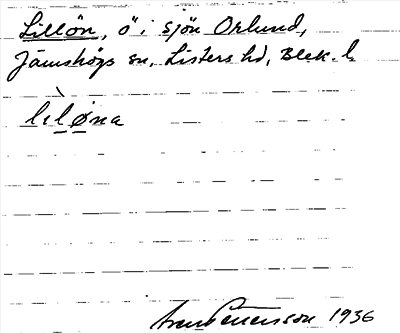 Lillön, ö i sjön Orlund,
Jämshögs sn, Listers hd, Blek. l.
lìløna
Pettersson 1936